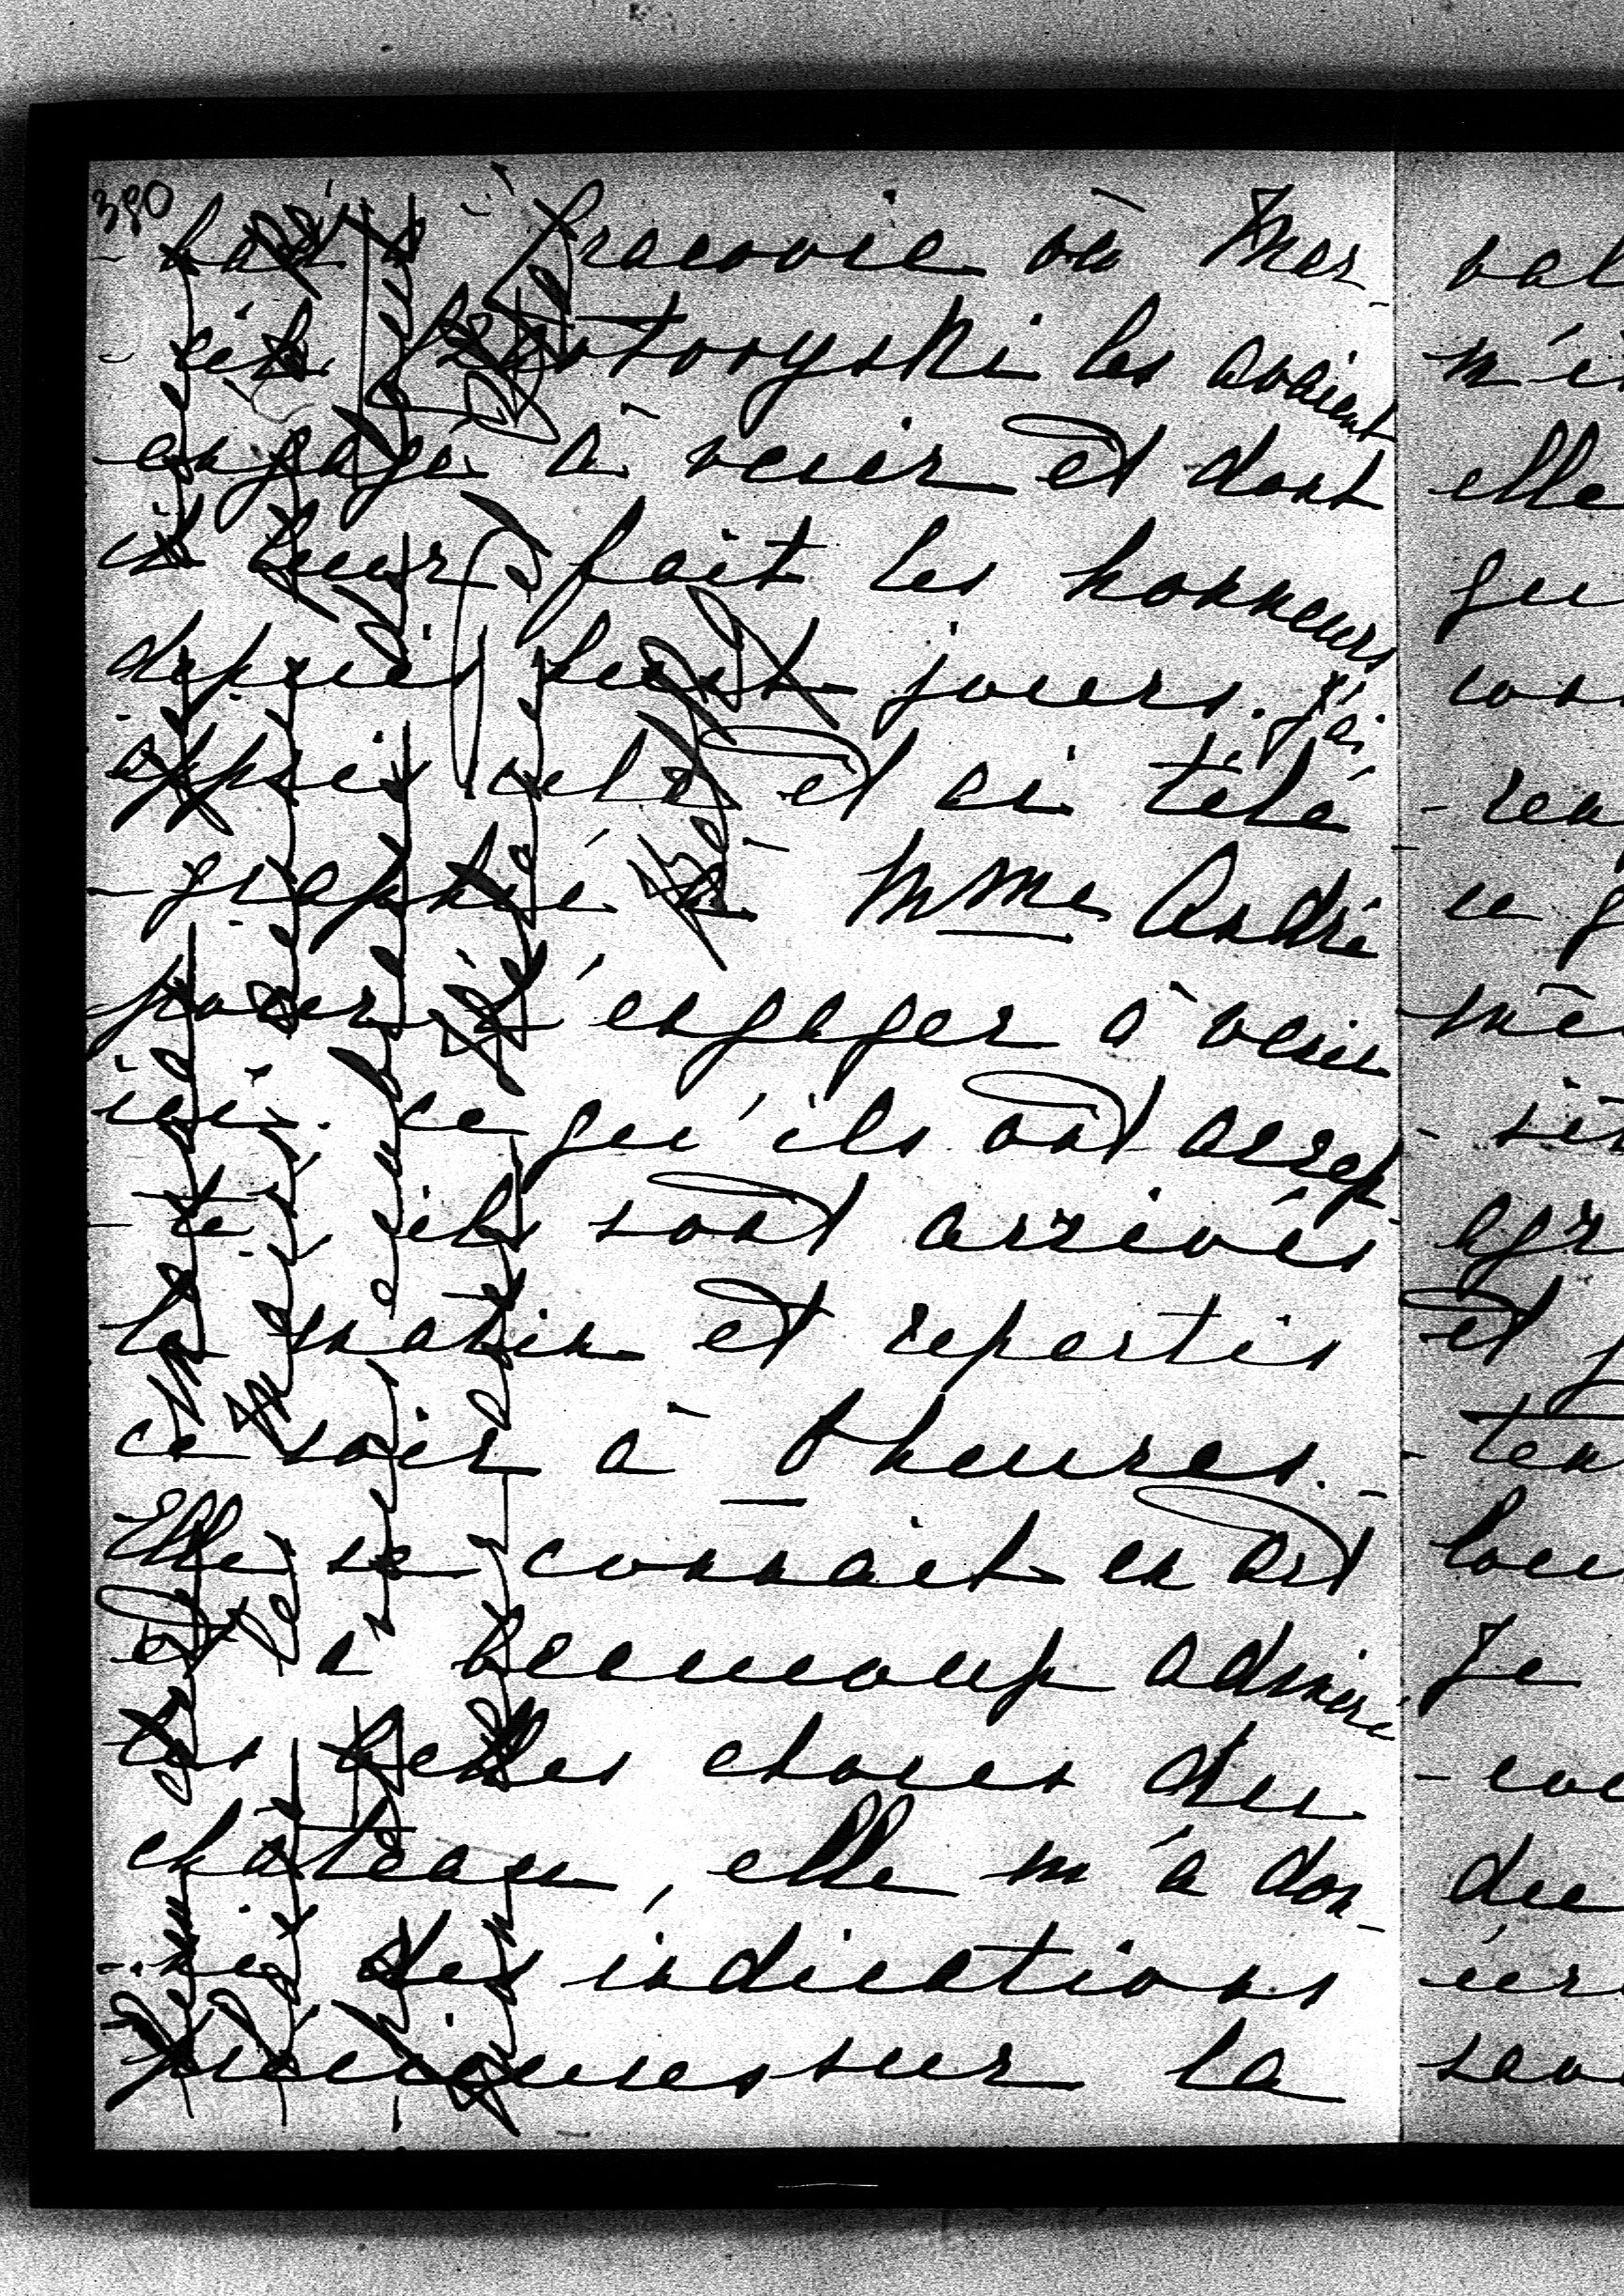 380
Cracovie où Mar-
-cel Czartoryski les avaient
engagé à venir et dont
il leur fait les honneurs
depuis huit jours. j'ai
appris cela et ai télé-
-graphié à Mme André
pour l'engager à venir
ici. ce qu'ils ont accep-
-té ils sont arrivés
le matin et repartis
ce soir à 8 heures. -
Elle se connait en art
et a beaucoup admiré
les belles choses du
château, elle m'a don-
-né des indications
précieuses sur la
val
m'é
elle
qu
con
- ren
ce q
mê
- sen
egr
et p
- ten
lou
Je
- co
du
ier
sav